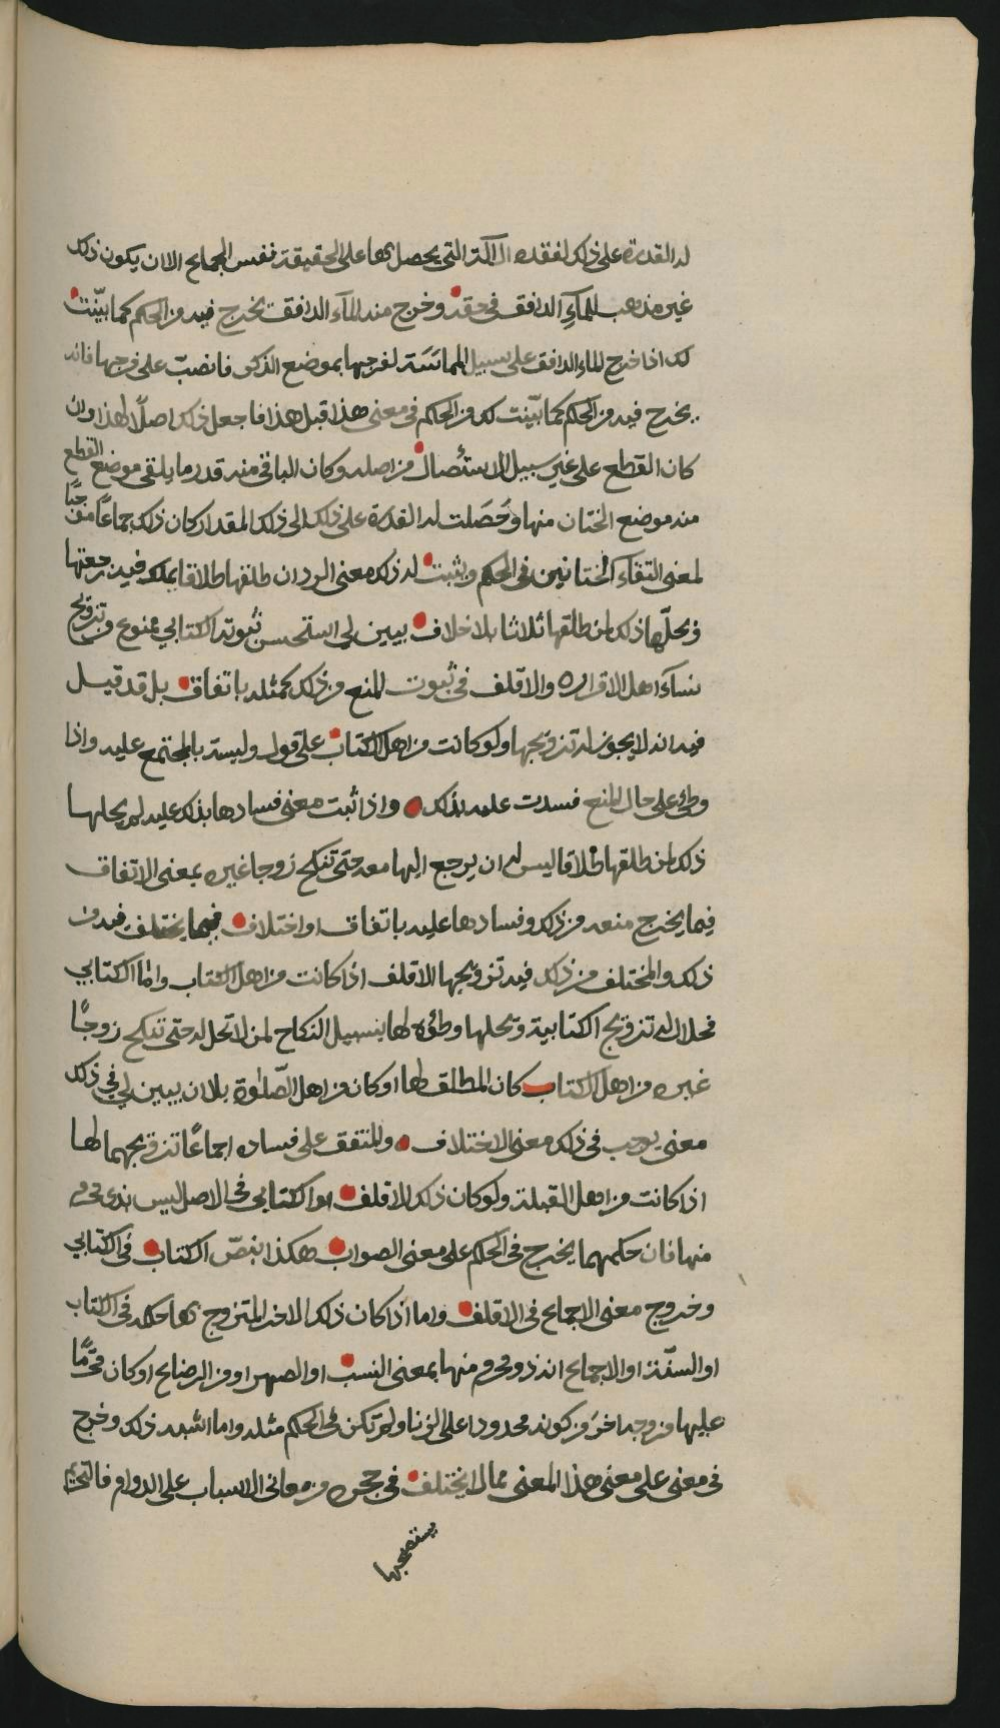 له القدرة على ذلك لفقده الآلة التي يحصل بها على الحقيقة نفس الجماع الا ان يكون ذلك
غير مذهب للماء الدافق في حقه وخرج منه الماء الدافق يخرج فيه من الحكم كما بيّنت
لك اذا خرج الماء الدافق على سبيل المماسَسَة لفرجها بموضع الذكر فانصبّ على فرجها فانه
يخرج فيه من الحكم كما بيّنت لك من الحكم في معنى هذا قبل هذا فاجعل ذلك اصلًا لهذا وان
كان القطع على غير سبيل الاستئصال من اصله وكان الباقي منه قدر ما يلتقي موضع القطع
منه موضع الختان منها وحَصَلت له القدرة على ذلك الى ذلك المقدار كان ذلك جماعًا موجبًا
لمعنى التقاء الختانين في الحكم ويثبت له ذلك معنى الرد ان طلقها طلاقا يملك فيه رجعتها
ويحلّها ذلك لمن طلقها ثلاثا بلا خلاف يبين لي استحسن ثبوته الكتابي ممنوع وتزويج
نساء اهل الاقرار والاقلف في ثبوت المنع من ذلك كمثله باتفاق بل قد قيل
فيه انه لا يجوز له تزويجها ولو كانت من اهل الكتاب على قول وليسه بالمجتمع عليه واذا
وطي على حال المنع فسدت عليه بذلك واذا ثبت معنى فسادها بذلك عليه لم يحلها
ذلك لمن طلقها طلاقا ليس له ان يرجع اليها معه حتى تنكح زوجا غيره بمعنى الاتفاق
فيما يخرج منعه من ذلك وفسادها عليه باتفاق او اختلاف فيما يختلف فيه من
ذلك والمختلف من ذلك فيه تزويجها الاقلف اذا كانت من اهل الكتاب واما الكتابي
فحلال له تزويج الكتابية ويحلها وطؤه لها بسبيل النكاح لمن لا تحل له حتى تنكح زوجًا
غيره من اهل الكتاب كان المطلق لها او كان من اهل الصّلوة بلا ان يبين لي في ذلك
معنى يوجب في ذلك معنى الاختلاف والمتفق على فساده اجماعًا تزويجهما لها
اذا كانت من اهل القبلة ولو كان ذلك الاقلف او الكتابي في الاصل ليس بذي محرم
منها فان حكمهما يخرج في الحكم على معنى الصواب هكذا بنصّ الكتاب في الكتابي
وخروج معنى الاجماع في الاقلف واما اذا كان ذلك الاخر المتزوج بها حكمه في الكتاب
او السنّة او الاجماع انه ذو محرم منها بمعنى النسب او الصهر او من الرضاع او كان محرّمًا
عليها من وجه اخر من كونه محدودا على الزنا ولم تكن في الحكم مثله وما اشبه ذلك وخرج
في معنى على معنى هذا المعنى مما لا يختلف في حجره من معاني الاسباب على الدوام فالتحريم
يستصحبها